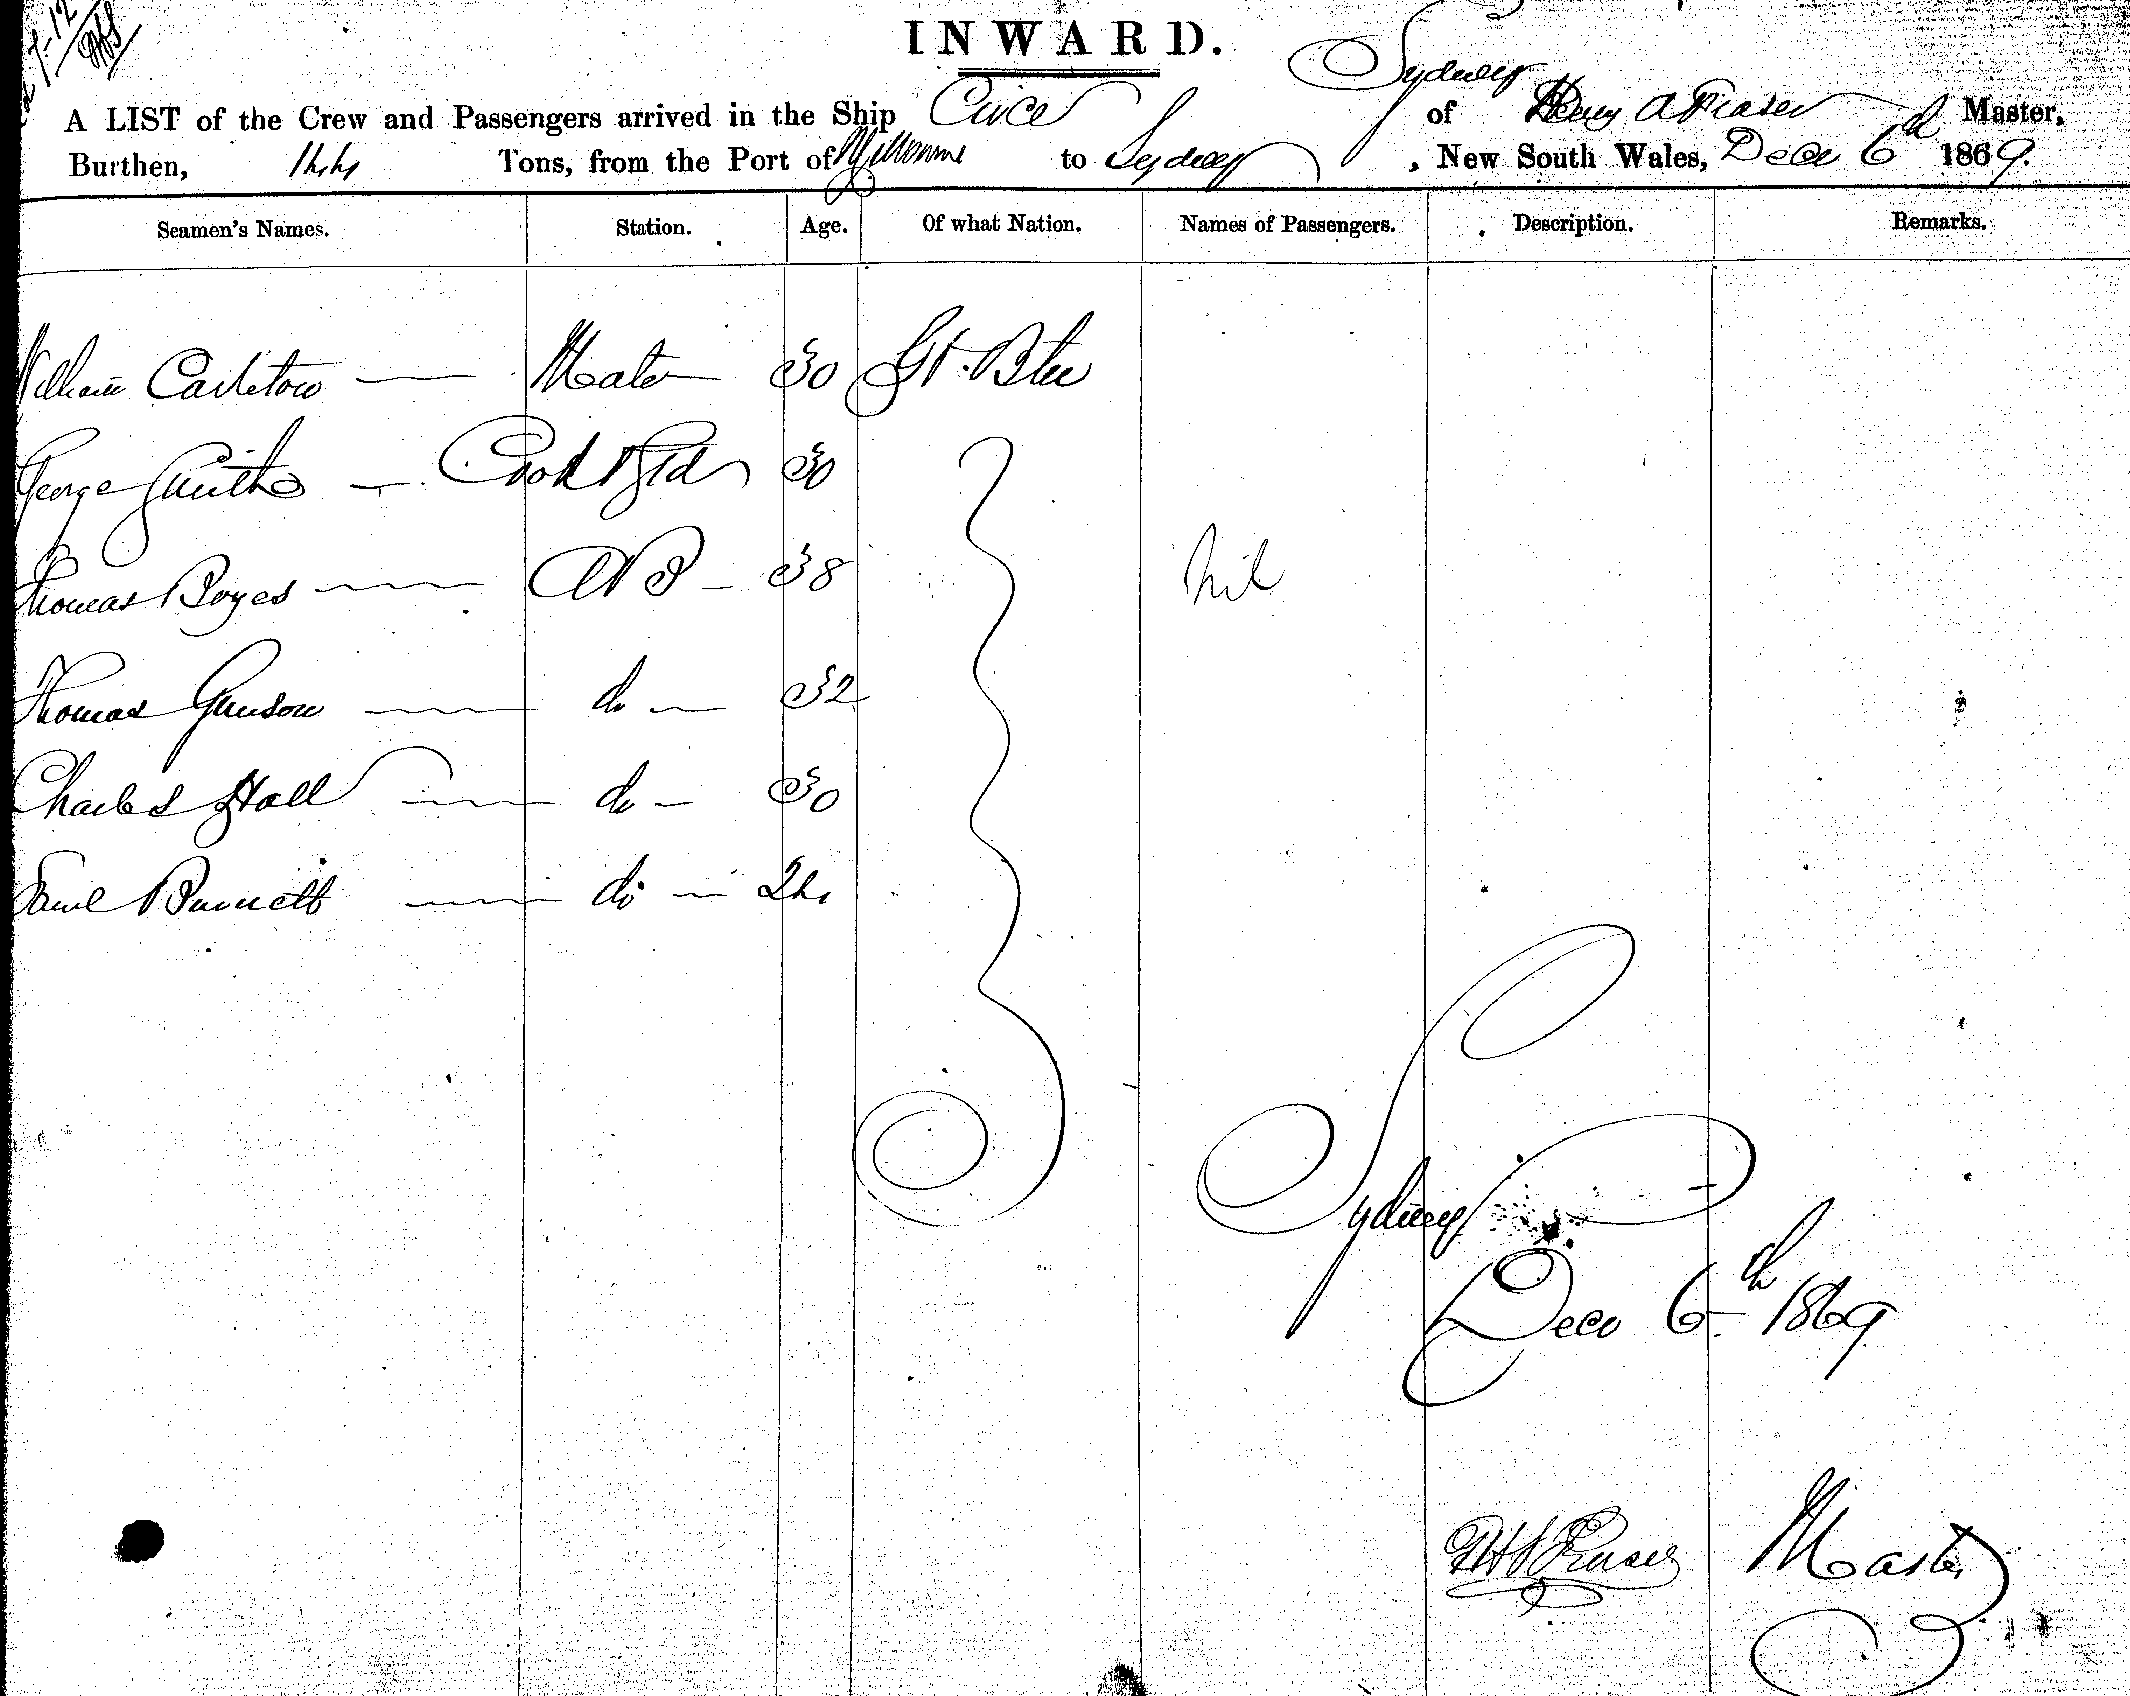 INWARD.
A LIST of the Crew and Passengers arrived in the Ship Circe Sydney of Henry A Fraser Master,
Burthen, 144 Tons, from the Port of Melbourne to Sydney, New South Wales, Decr 6th 1869.
Seamen's Names. Station. Age. Of what Nation. Names of Passengers. Description. Remarks.
William Carletow Mate 30 Gt. Btn
George Smith Cook & Std 30
Thomas Boyes AB 38 Nil
Thomas Gunson do 32
Charles Hall do 30
Saml Burnett do 24
Sydney
Decr 6th 1869
Fraser Master